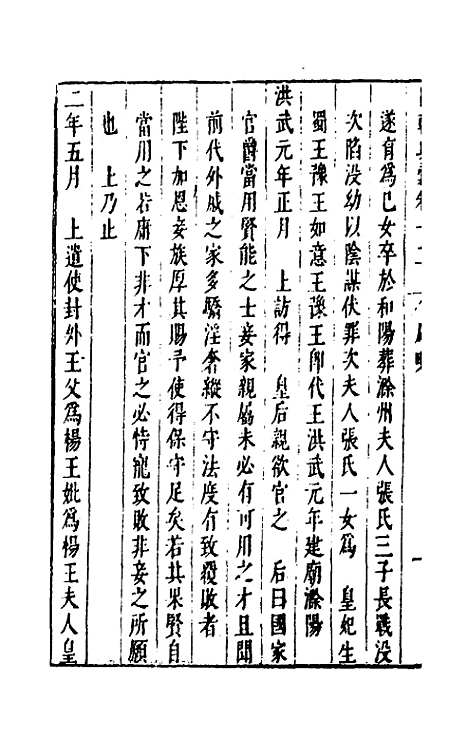 遂育爲己女卒於和陽葬滁州夫人張氏三子長戰没
次陷没幼以陰謀伏罪次夫人張氏一女爲　皇妃生
蜀王豫王如意王豫王卽代王洪武元年建廟滁陽
洪武元年正月　上訪得　皇后親欲官之　后曰國家
官爵當用賢能之士妾家親屬未必有可用之才且聞
前代外戚之家多驕淫奢縱不守法度有致覆敗者
陛下加恩妾族厚其賜予使得保守足矣若其果賢自
當用之若庸下非才而官之必恃寵致敗非妾之所願
也　上乃止
二年五月　上遣使封外王父爲楊王妣爲楊王夫人皇